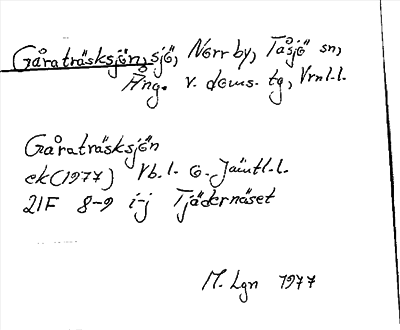 Gåraträsksjön, sjö, Norrby, Tåsjö sn,
Ång. v. doms. tg, Vrnl.l.
Gåraträsksjön
ek (1977) Vb.l. o. Jämtl.l.
21F 8-9 i-j Tjädernäset
M. Lgn 1977